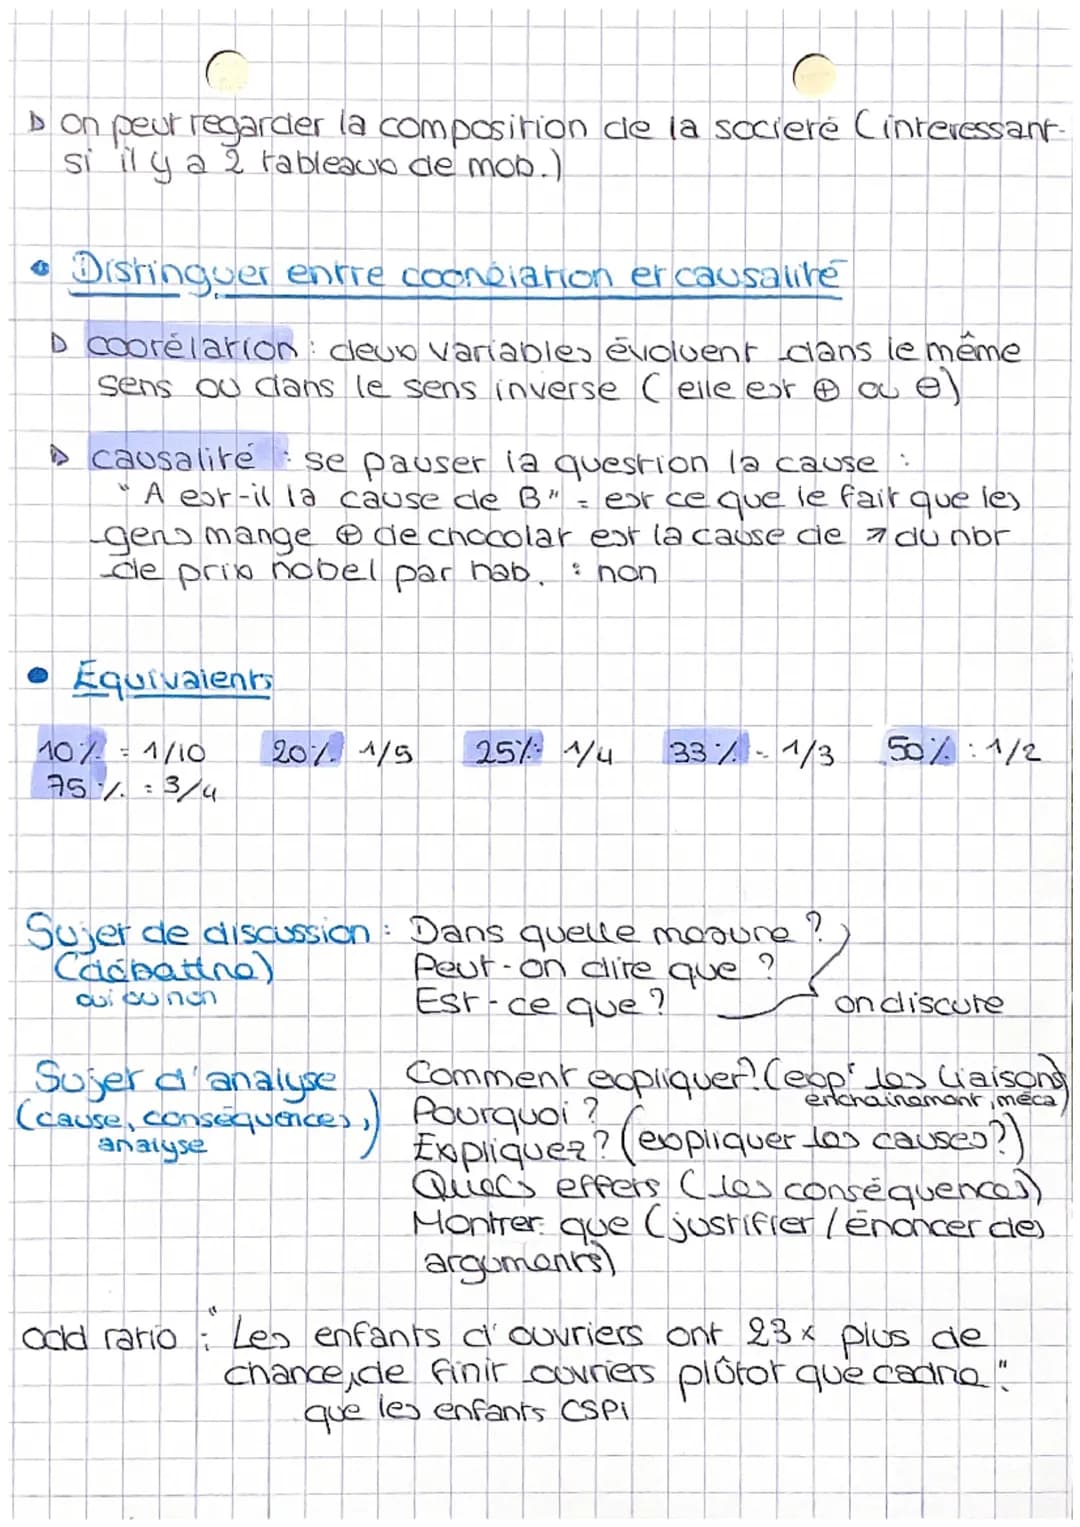 ▷ on peut regarder la composition de la societé (interessant
si il y a 2 tableaux de mob.)
• Distinguer entre coorrélation et causalité
▷ coorélation : deux variables évoluent dans le même
sens ou dans le sens inverse (elle est ⊕ ou ⊖)
▷ causalité : se pauser la question la cause :
"A est-il la cause de B" = est ce que le fait que les
gens mange ⊕ de chocolat est la cause de ↗ du nbr
de prix nobel par hab. : non
• Équivalents
10% = 1/10 20% 1/5 25% : 1/4 33% - 1/3 50% : 1/2
75% : 3/4
Sujet de discussion : Dans quelle mesure ?
(débattre) Peut-on dire que ?
oui ou non Est-ce que ? on discute
Sujet d'analyse Comment expliquer? (exp° les liaisons
enchainement, méca)
(cause, conséquences, Pourquoi ?
analyse) Expliquez? (expliquer les causes?)
Quels effets (les conséquences)
Montrer que (justifier / énoncer des
arguments)
odd ratio : "Les enfants d'ouvriers ont 23x plus de
chance, de finir ouvriers plûtot que cadre".
que les enfants CSPI